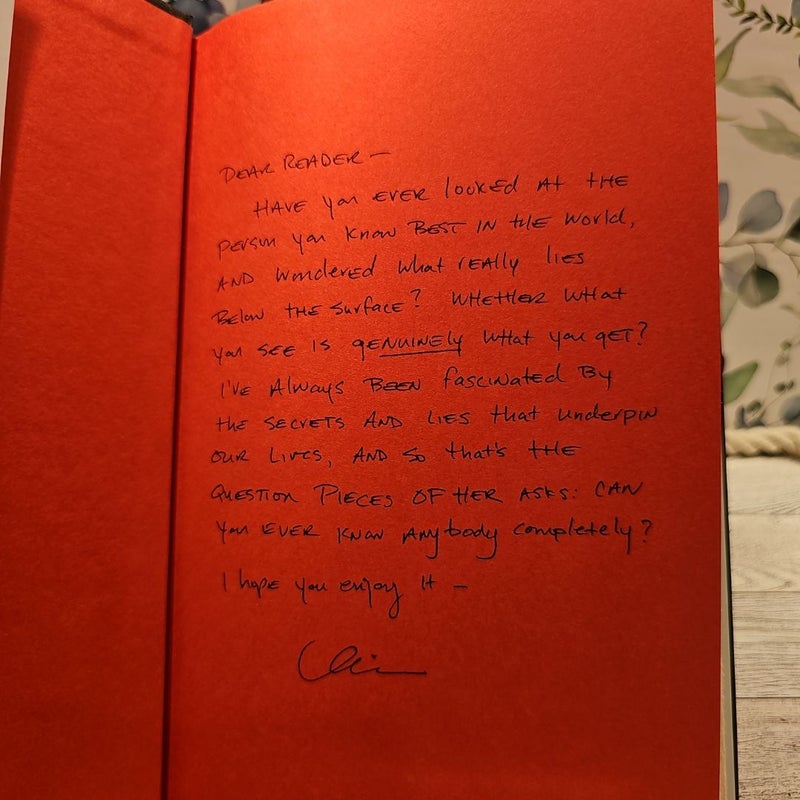 DEAR READER —
HAVE you EVER looked At tHE
person you know BEST IN tHE world,
AND wondered what rEAlly lies
Below tHE surface? WHEtHER WHAt
you SEE is gENUINEly wHat you gEt?
I'VE Always BEEN fascinated By
the SECRETS AND LIES that underpin
OUR LIVES, AND so that's tHE
QUESTION PIECES OF HER ASKS: CAN
you EVER KNOW Anybody completely?
I hope you enjoy It —